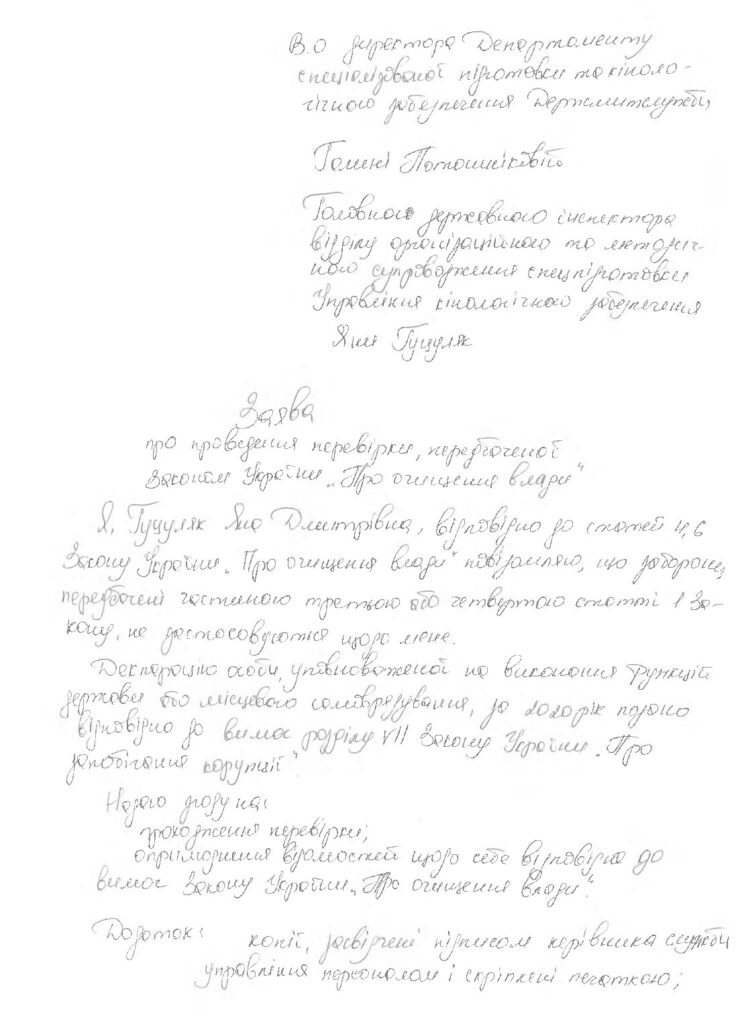 В.о директора Департаменту
спеціалізованої підготовки та кіноло-
гічного забезпечення Держмитслужби
Галині
Головного державного інспектора
відділу організаційного та методич-
ного супроводження спецпідготовки
Управління кінологічного забезпечення
Яни Гуцуляк
Заява
про проведення перевірки, передбаченої
Законом України „Про очищення влади"
Я, Гуцуляк Яна Дмитрівна, відповідно до статей 4, 6
Закону України „Про очищення влади" повідомляю, що заборони,
передбачені частиною третьою або четвертою статті 1 За-
кону, не застосовуються щодо мене.
Декларацію особи, уповноваженої на виконання функцій
держави або місцевого самоврядування, за 2020 рік подано
відповідно до вимог розділу VII Закону України „Про
запобігання корупції".
Надаю згоду на:
проходження перевірки;
оприлюднення відомостей щодо себе відповідно до
вимог Закону України „Про очищення влади".
Додаток: копії, засвідчені підписом керівника служби
управління персоналом і скріплені печаткою;